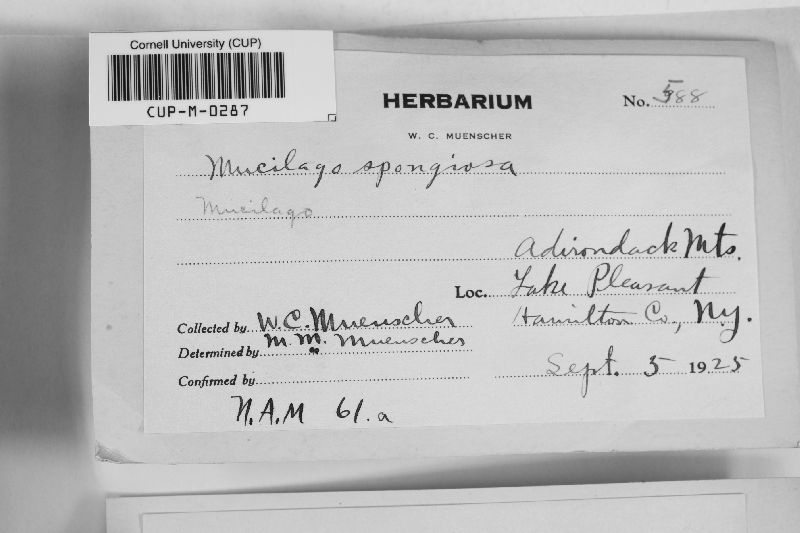 Cornell University (CUP)
CUP-M-0287
HERBARIUM
No. 588
W. C. MUENSCHER
Mucilago spongiosa
Mucilago
Adirondack Mts.
Loc. Lake Pleasant
Hamilton Co., N.y.
Collected by W.C. Muenscher
Determined by M. M. Muenscher
Confirmed by
Sept. 5 1925
N.A.M 61.a